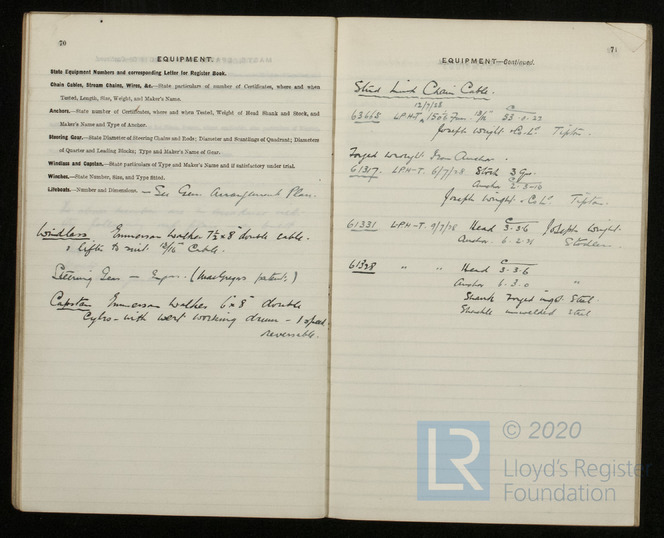 70
EQUIPMENT.
State Equipment Numbers and corresponding Letter for Register Book.
Chain Cables, Stream Chains, Wires, &c.—State particulars of number of Certificates, where and when
Tested, Length, Size, Weight, and Maker's Name.
Anchors.—State number of Certificates, where and when Tested, Weight of Head Shank and Stock, and
Maker's Name and Type of Anchor.
Steering Gear.—State Diameter of Steering Chains and Rods; Diameter and Scantlings of Quadrant; Diameters
of Quarter and Leading Blocks; Type and Maker's Name of Gear.
Windlass and Capstan.—State particulars of Type and Maker's Name and if satisfactory under trial.
Winches.—State Number, Size, and Type fitted.
Lifeboats.—Number and Dimensions. — See Gen. Arrangement Plan.
Windlass Emmerson Walker 7½ x 8" double cable
lifter to suit 13/16" Cable.
Steering Gear — (MacGregors patent)
Capstan Emmerson Walker 6" x 8" double
Cyls - with west working drum - 1 speed
reversible.
71
EQUIPMENT—Continued.
Stud Link Chain Cable.
12/7/28
63665 LPH-T 150 Fm. 13/16 53.0.22
Joseph Wright & Co Ld Tipton.
Forged wrought Iron Anchor.
61317 LPH-T 6/7/28 Stock 3 Qrs.
Anchor 2.3.10
Joseph Wright & Co Ld Tipton.
61331 LPH-T 9/7/28 Head 3.3.6 Joseph Wright
Anchor 6.2.21 Stockless
61328 " " Head 3.3.6
Anchor 6.3.0 "
Shank Forged ingt. Steel
Shackle unwelded Steel
LR
© 2020
Lloyd's Register
Foundation